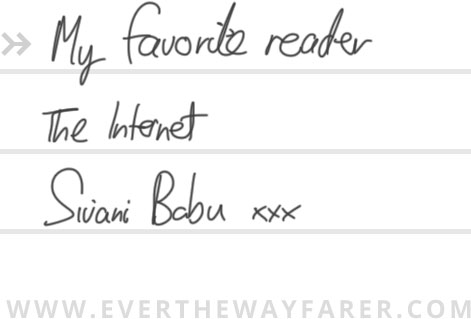 My favorite reader
The Internet
Sivani Babu xxx
WWW.EVERTHEWAYFARER.COM